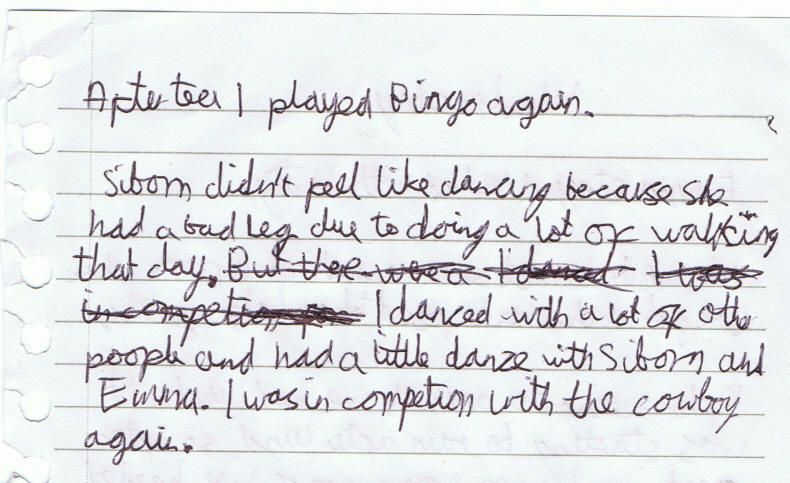 After tea I played Bingo again.
Siborn didn't feel like dancing because she
had a bad leg due to doing a lot of walking
that day. But ther was a I danced I was
in competion I danced with a lot of other
poople and had a little danze with Siborn and
Emma. I was in competion with the cowboy
again.